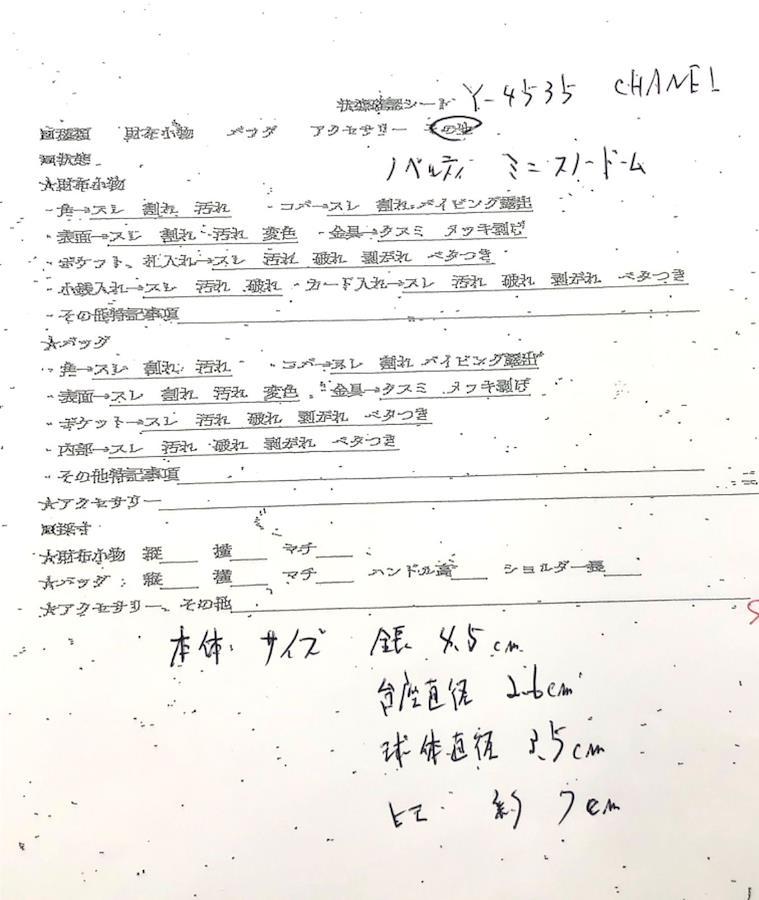 状態確認シート Y-4535 CHANEL
□種類 財布小物 バッグ アクセサリー その他
□状態 ノベルティ ミニスノードーム
★財布小物
・角→スレ 割れ 汚れ ・コバ→スレ 割れ パイピング露出
・表面→スレ 割れ 汚れ 変色 ・金具→クスミ メッキ剥げ
・ポケット、札入れ→スレ 汚れ 破れ 剥がれ ベタつき
・小銭入れ→スレ 汚れ 破れ ・カード入れ→スレ 汚れ 破れ 剥がれ ベタつき
・その他特記事項
★バッグ
・角→スレ 割れ 汚れ ・コバ→スレ 割れ パイピング露出
・表面→スレ 割れ 汚れ 変色 ・金具→クスミ メッキ剥げ
・ポケット→スレ 汚れ 破れ 剥がれ ベタつき
・内部→スレ 汚れ 破れ 剥がれ ベタつき
・その他特記事項
★アクセサリー
□採寸
★財布小物 縦 横 マチ
★バッグ:縦 横 マチ ハンドル高 ショルダー長
★アクセサリー、その他
本体 サイズ 全長 4.5cm
台座直径 2.6cm
球体直径 3.5cm
ヒモ 約 7cm